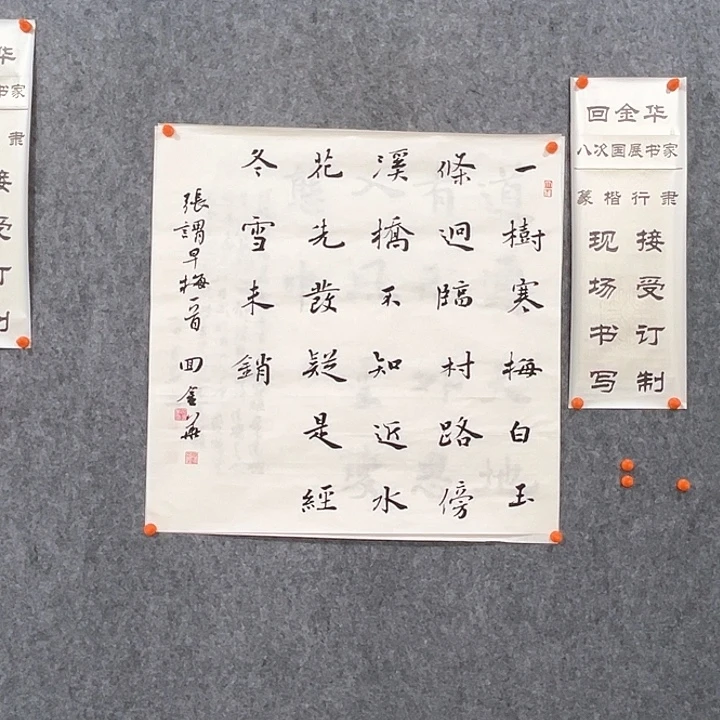 一樹寒梅白玉
條迥臨村路傍
溪橋不知近水
花先發疑是經
冬雪未銷
張謂早梅一首 回金華
回金华
八次国展书家
篆楷行隶
现场书写
接受订制
华
书家
隶
接受订制